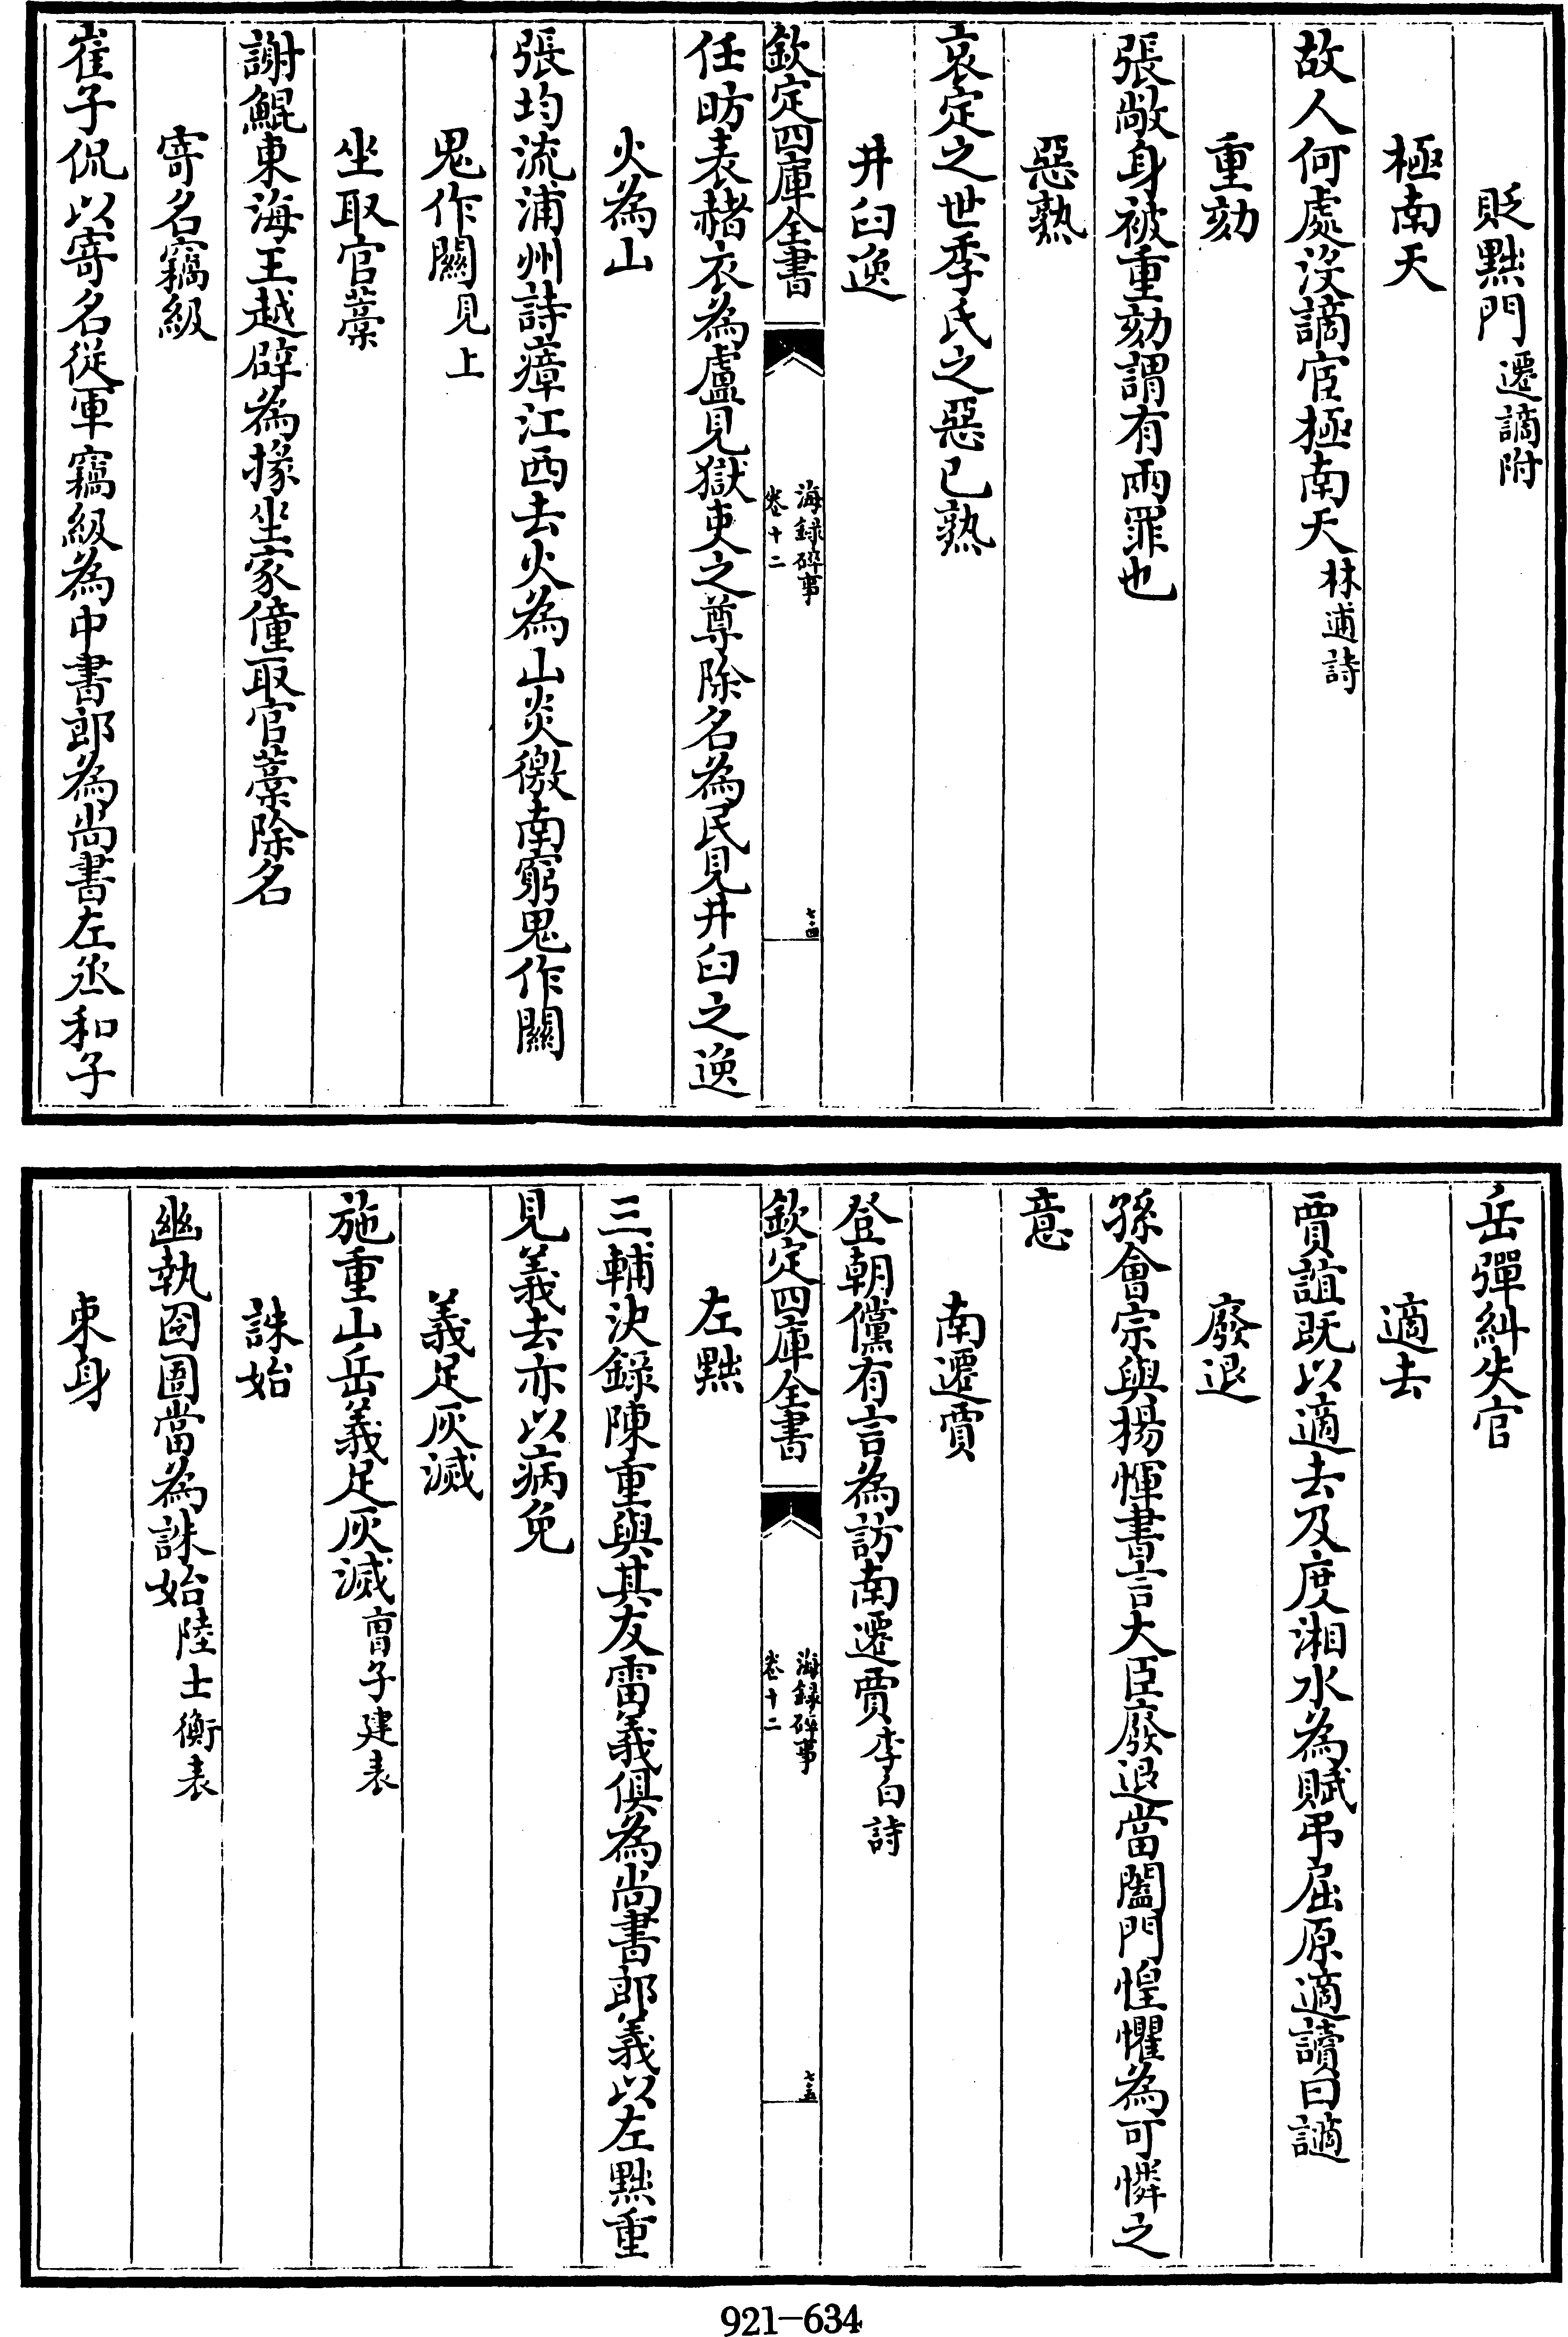 貶黜門遷謫附
極南天
故人何處沒謫宦極南天林逋詩
重劾
張敞身被重劾謂有兩罪也
惡熟
哀定之世季氏之惡已熟
井臼逸
欽定四庫全書
海録碎事
卷十二
七十四
任昉表赭衣為虜見獄吏之尊除名為民見井臼之逸
火為山
張均流浦州詩瘴江西去火為山炎徼南窮鬼作關
鬼作關見上
坐取官藁
謝鯤東海王越辟為掾坐家僮取官藁除名
寄名竊級
崔子侃以寄名從軍竊級為中書郎為尚書左丞和子
岳彈糾失官
適去
賈誼既以適去及度湘水為賦弔屈原適讀曰謫
廢退
孫會宗與楊惲書言大臣廢退當闔門惶懼為可憐之
意
南遷賈
登朝儻有言為訪南遷賈李白詩
欽定四庫全書
海録碎事
卷十二
七十五
左黜
三輔決錄陳重與其友雷義俱為尚書郎義以左黜重
見義去亦以病免
義足灰滅
施重山岳義足灰滅曹子建表
誅始
幽執囹圄當為誅始陸士衡表
束身
921-634